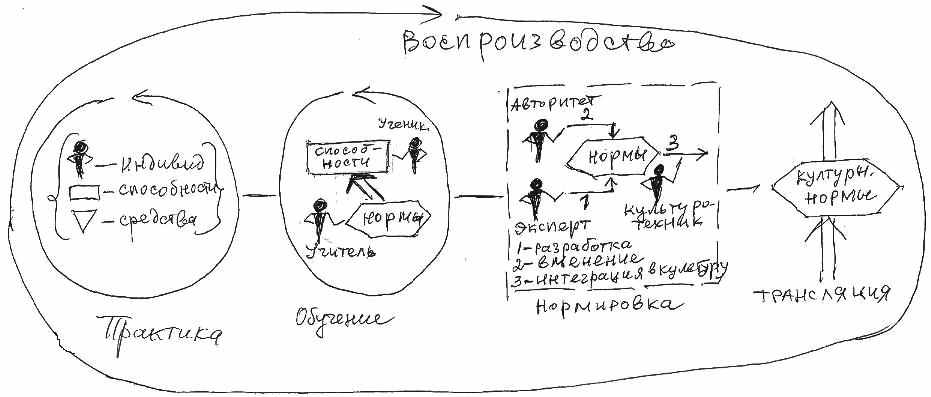 Воспроизводство
– индивид
– способности
– средства
Практика
Ученик
способ-
ности
нормы
Учитель
Обучение
Авторитет
2
нормы
3
1
Эксперт
Культуро-
техник
1-разработка
2-вменение
3-интеграция в культуру
Нормировка
культурн.
нормы
Трансляция